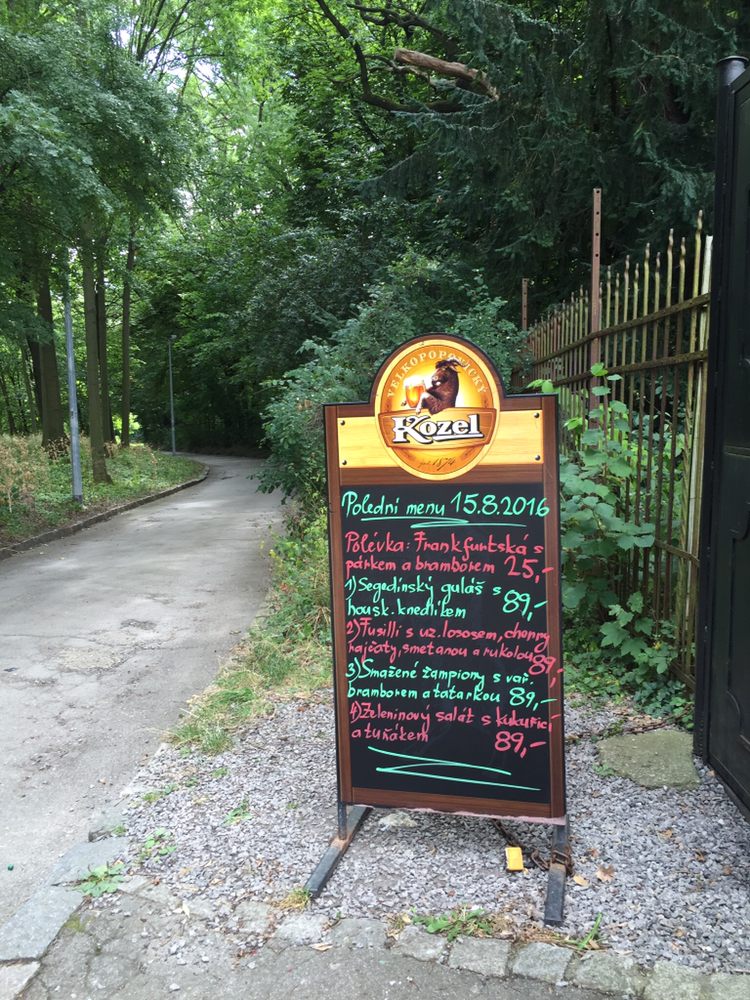 VELKOPOPOVICKÝ
Kozel
1874
Polední menu 15.8.2016
Polévka: Frankfurtská s
párkem a bramborem 25,-
1) Segedínský guláš s
housk. knedlíkem 89,-
2) Fusilli s uz. lososem, cherry
rajčaty, smetanou a rukolou 89,-
3) Smažené žampiony s vař.
bramborem a tatarkou 89,-
4) Zeleninový salát s kukuřicí
a tuňákem 89,-